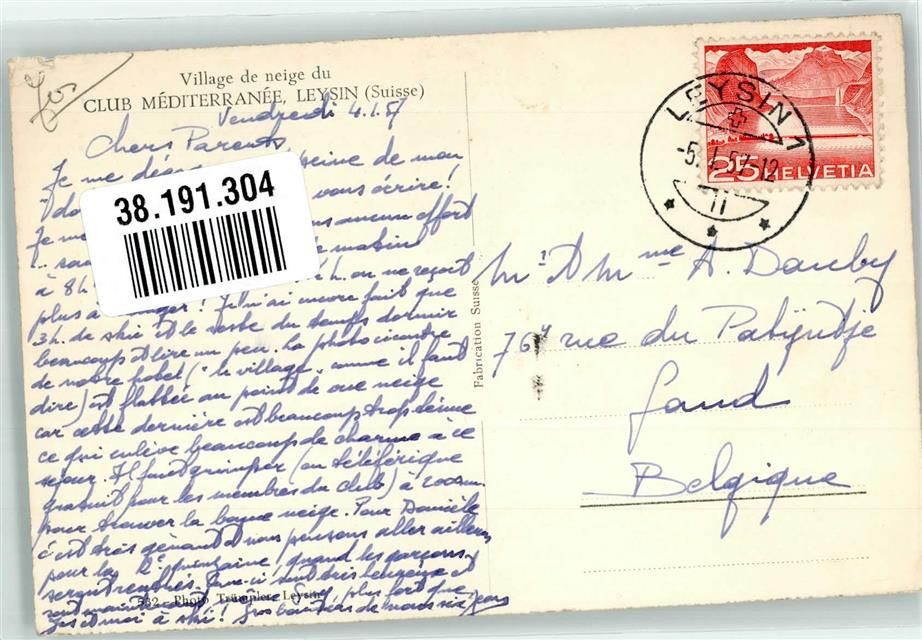 Village de neige du
CLUB MÉDITERRANÉE, LEYSIN (Suisse)
Vendredi 4.1.57
Chers Parents
Je me peine de mon
vous écrire!
Je aucun effort
matin
à 8h on ne reçoit
plus à manger! Je n'ai encore fait que
3h. de ski et le reste du temps dormir
beaucoup et lire un peu. La photo
de notre hôtel ("le village" comme il faut
dire) est flattée au point de vue neige
car cette dernière est beaucoup trop
ce qui enlève beaucoup de charme à ce
séjour. Il faut grimper (en téléférique
gratuit pour les membres du club) à 2000m
pour trouver la bonne neige. Pour Danièle
c'est très gênant et nous pensons aller ailleurs
pour la 2e quinzaine, quand les garçons
seront rentrés. Ceux-ci sont très heureux et
sont maintenant plus fort que
et moi à ski! Gros baisers de nous six Jean
532 - Photo Trümpler, Leysin
Fabrication Suisse
38.191.304
25 HELVETIA
LEYSIN 1
-5.1.57-12
11
Mr & Mme A. Dauby
76 rue du Patijntje
Gand
Belgique